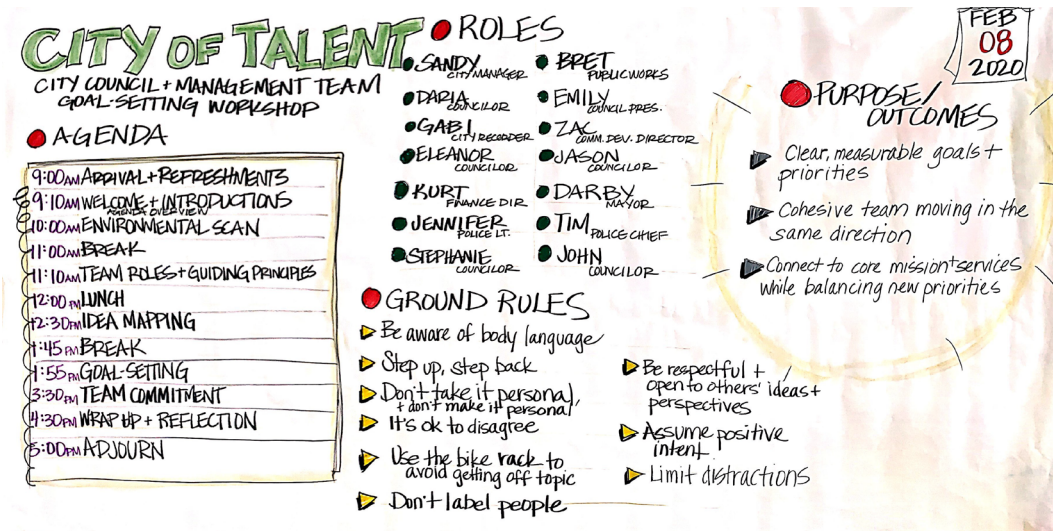 CITY OF TALENT
CITY COUNCIL + MANAGEMENT TEAM
GOAL-SETTING WORKSHOP
AGENDA
9:00AM ARRIVAL + REFRESHMENTS
9:10AM WELCOME + INTRODUCTIONS
AGENDA OVERVIEW
10:00AM ENVIRONMENTAL SCAN
11:00AM BREAK
11:10AM TEAM ROLES + GUIDING PRINCIPLES
12:00PM LUNCH
12:30PM IDEA MAPPING
1:45PM BREAK
1:55PM GOAL-SETTING
3:30PM TEAM COMMITMENT
4:30PM WRAP UP + REFLECTION
5:00PM ADJOURN
ROLES
SANDY
CITY MANAGER
DARIA
COUNCILOR
GABI
CITY RECORDER
ELEANOR
COUNCILOR
KURT
FINANCE DIR.
JENNIFER
POLICE LT.
STEPHANIE
COUNCILOR
BRET
PUBLIC WORKS
EMILY
COUNCIL PRES.
ZAC
COMM. DEV. DIRECTOR
JASON
COUNCILOR
DARBY
MAYOR
TIM
POLICE CHIEF
JOHN
COUNCILOR
GROUND RULES
Be aware of body language
Step up, step back
Don't take it personal,
+ don't make it personal
It's ok to disagree
Use the bike rack to
avoid getting off topic
Don't label people
Be respectful +
open to others' ideas +
perspectives
Assume positive
intent
Limit distractions
FEB
08
2020
PURPOSE/
OUTCOMES
Clear, measurable goals +
priorities
Cohesive team moving in the
same direction
Connect to core mission + services
while balancing new priorities